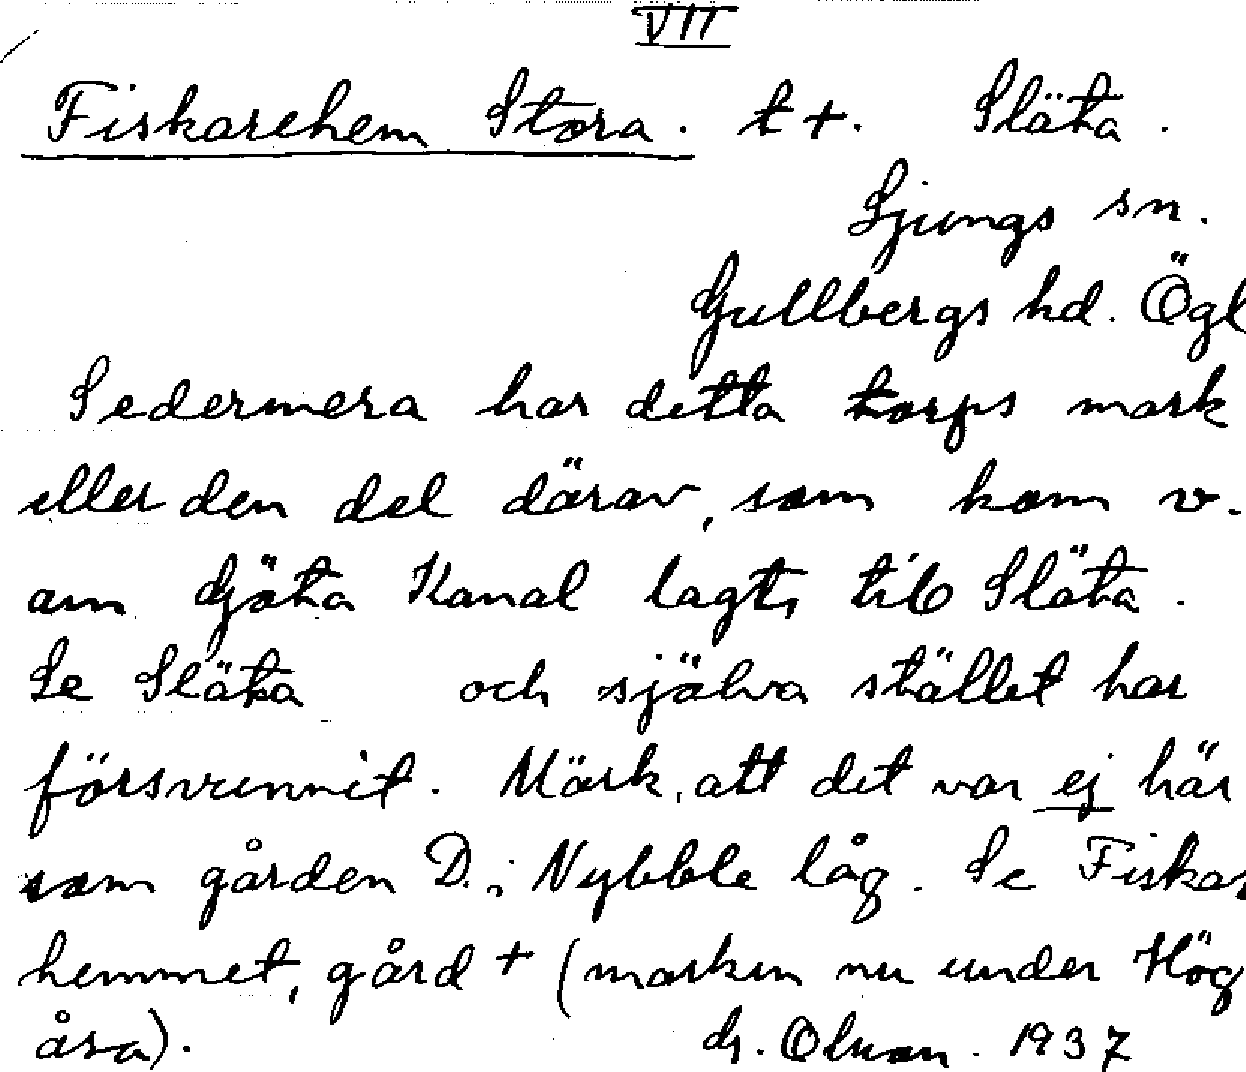 VII
Fiskarehem Stora. t +. Släta.
Ljungs sn.
Gullbergs hd. Ögl
Sedermera har detta torps mark
eller den del därav, som kom v.
om Göta Kanal lagts till Släta.
Se Släta och själva stället har
försvunnit. Märk, att det var ej här
som gården D. i Nybble låg. Se Fiskar
hemmet, gård + (marken nu under Hög
åsa). G. Olson. 1937